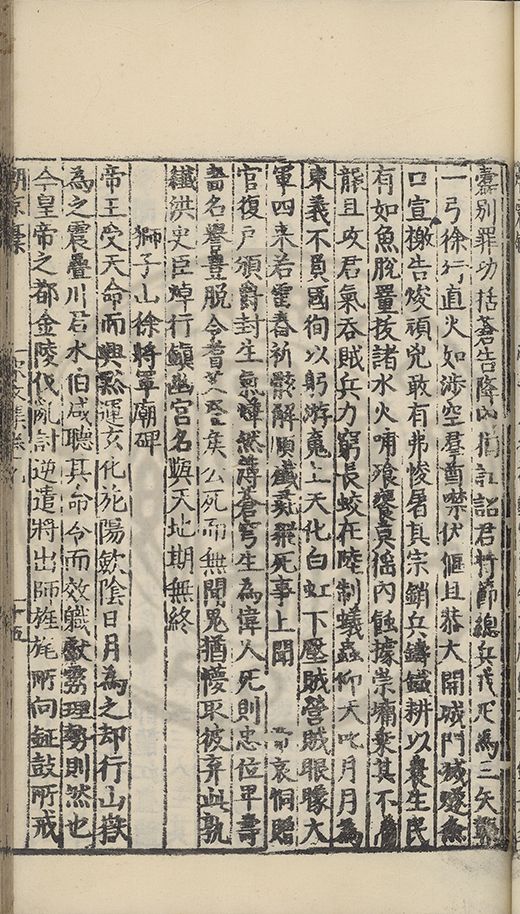 別罪功括蒼告降 詔君持節總兵戎死為三矢
一弓徐行直火如涉空群酋禁伏傴且恭大開城門
口宣檄告焌頑兇敢有弗悛暑其宗銷兵鑄鐵耕以養生民
有如魚脫罝拔諸水火哺飱饔 內蝕據崇墉棄其不
龍且攻君氣吞賊兵力窮長蛟在陸制蟻蟲仰天吹月月為
東義不負國徇以躬游魂上天化白虹下壓賊營賊眼矇大
軍四来若雷春祈 解順 死事上聞 帝哀恫贈
官復戶頒爵封生氣燁然薄蒼穹生為偉人死則忠位卑壽
嗇名譽豐脫令耆 侯公死而無聞鬼猶懵取彼弃此孰
纎洪史臣焯行鎮幽宮名與天地期無終
獅子山徐將軍廟碑
帝王受天命而興黙運玄化施陽歛陰日月為之却行山嶽
為之震疊川后水伯咸聽其命令而效職獻 理勢則然也
今皇帝之都金陵伐亂討逆遣將出師旌旄所向鉦鼓所戒
十五